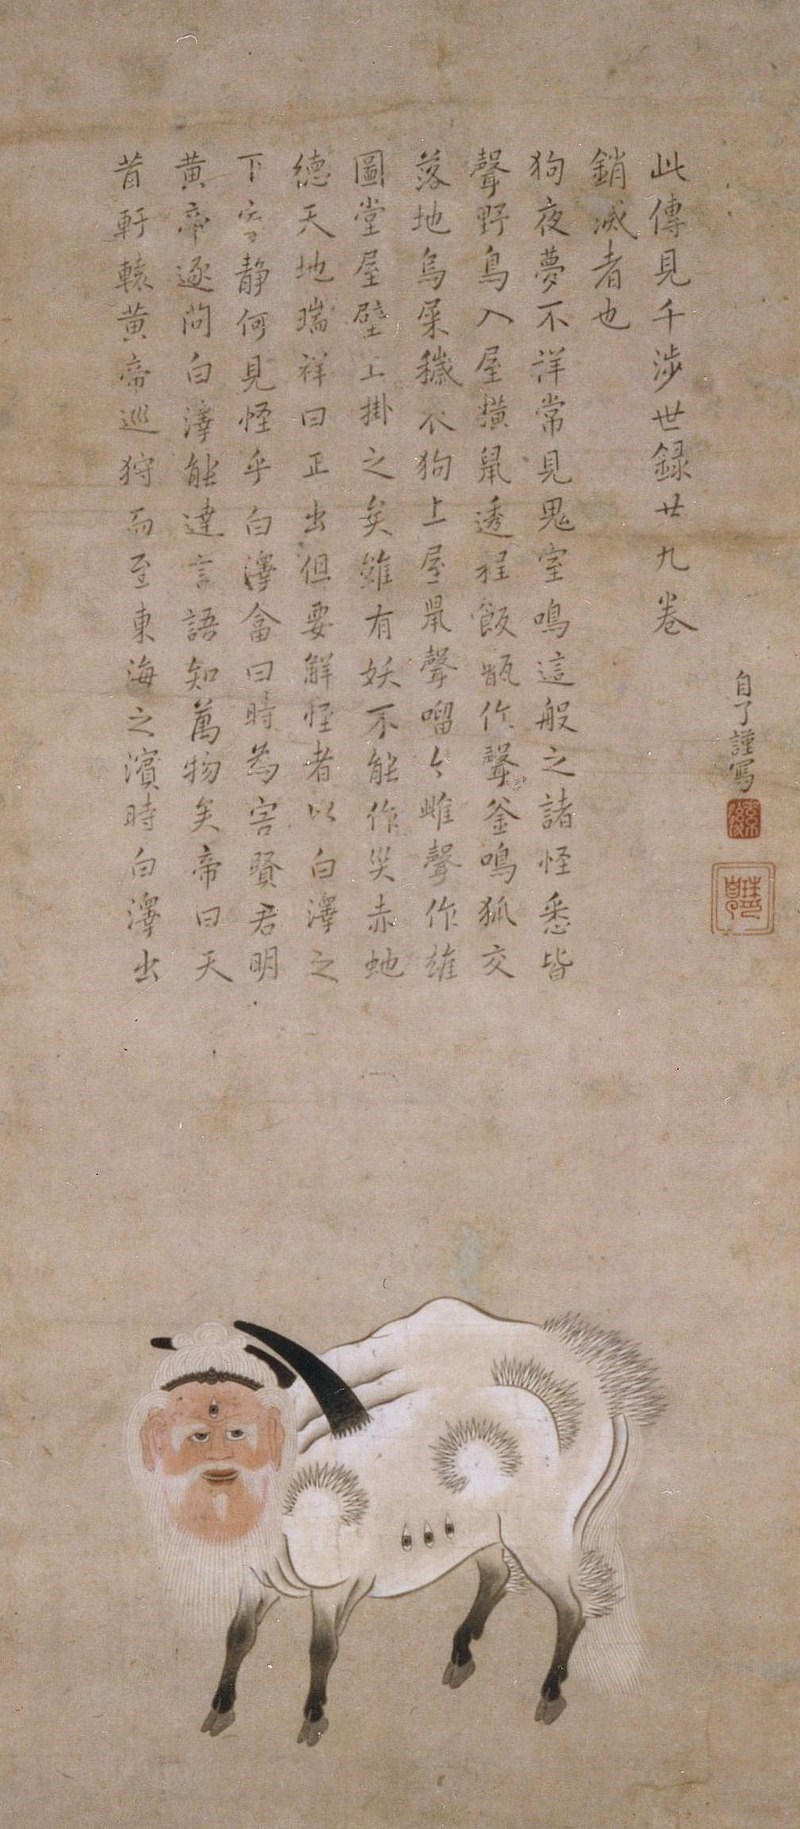 昔軒轅黄帝巡狩而至東海之濱時白澤出
黄帝逐問白澤能達言語知萬物矣帝曰天
下寧静何見怪乎白澤畣曰時為害賢君明
德天地瑞祥曰正出但要解怪者以白澤之
圖堂屋壁上掛之矣雖有妖不能作災赤虵
落地烏屎穢衣狗上屋鼠聲嚠々雌聲作雄
聲野鳥入屋横鼠透程飯甑作聲釜鳴狐交
狗夜夢不祥常見鬼室鳴這般之諸怪悉皆
銷滅者也
此傳見千涉世録廿九卷
自了謹寫